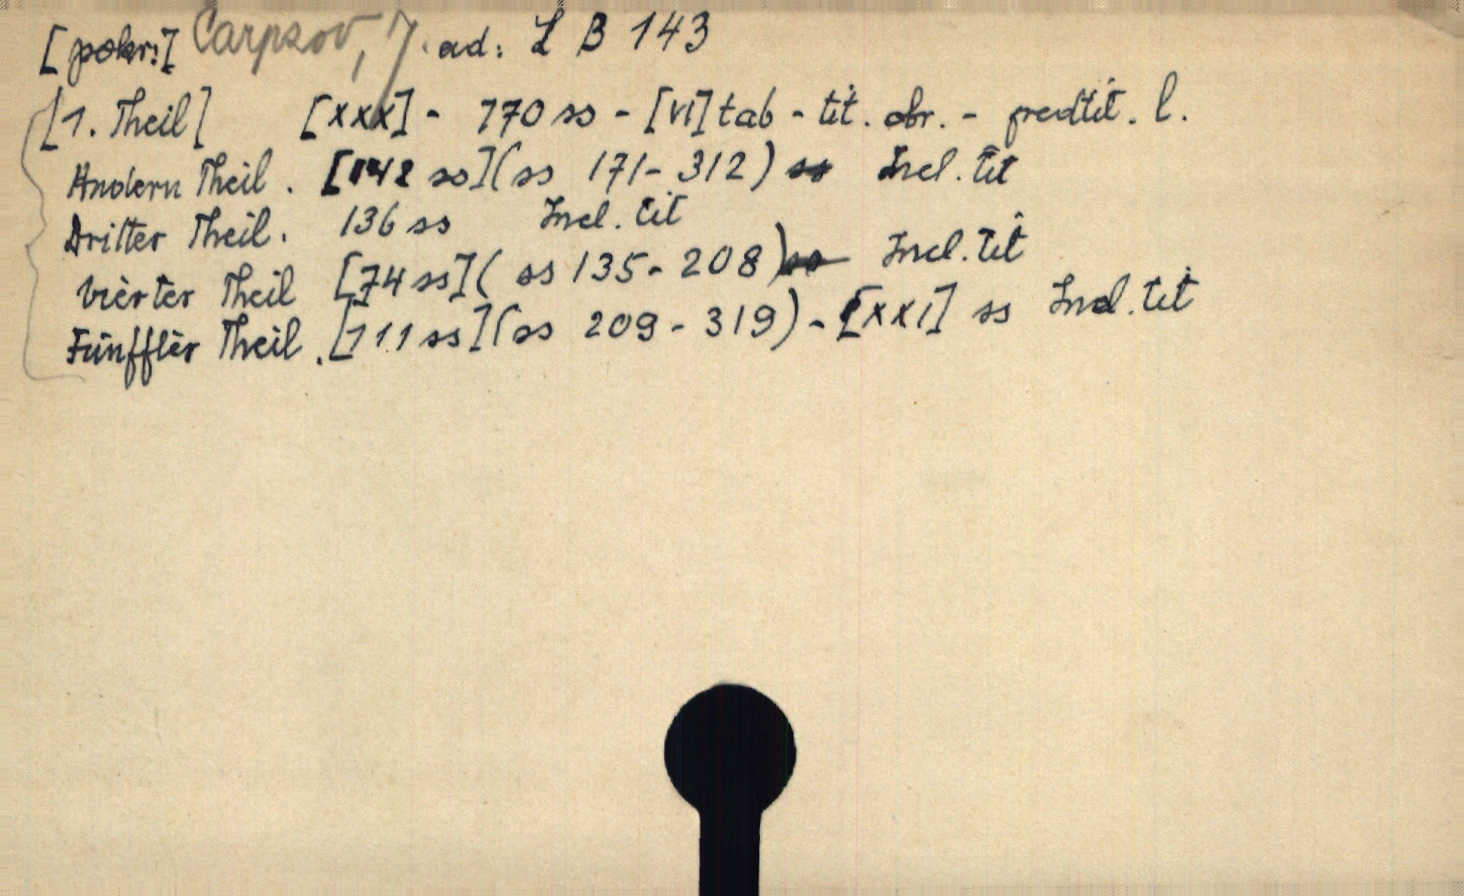 [pokr:] Carpzov, J. ad: L B 143
[1. Theil] [xxx] - 770 ss - [VI] tab - tit. obr. - predtit. l.
Andern Theil. [142 ss] (ss 171-312) ss Incl. tit
Dritter Theil. 136 ss Incl. tit
Vierter Theil [74 ss] (ss 135-208) ss Incl. tit
Fünffter Theil. [111 ss] (ss 209-319) - [XXI] ss Incl. tit